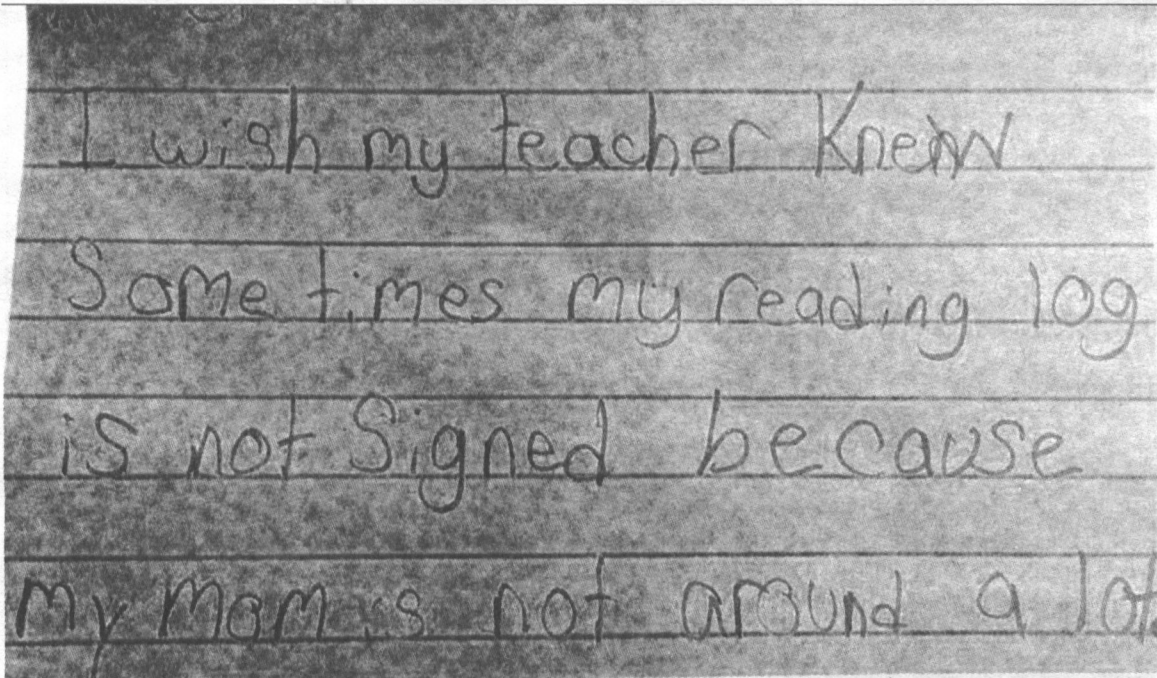 I wish my teacher knew
Sometimes my reading log
is not signed because
my mom is not around a lot.